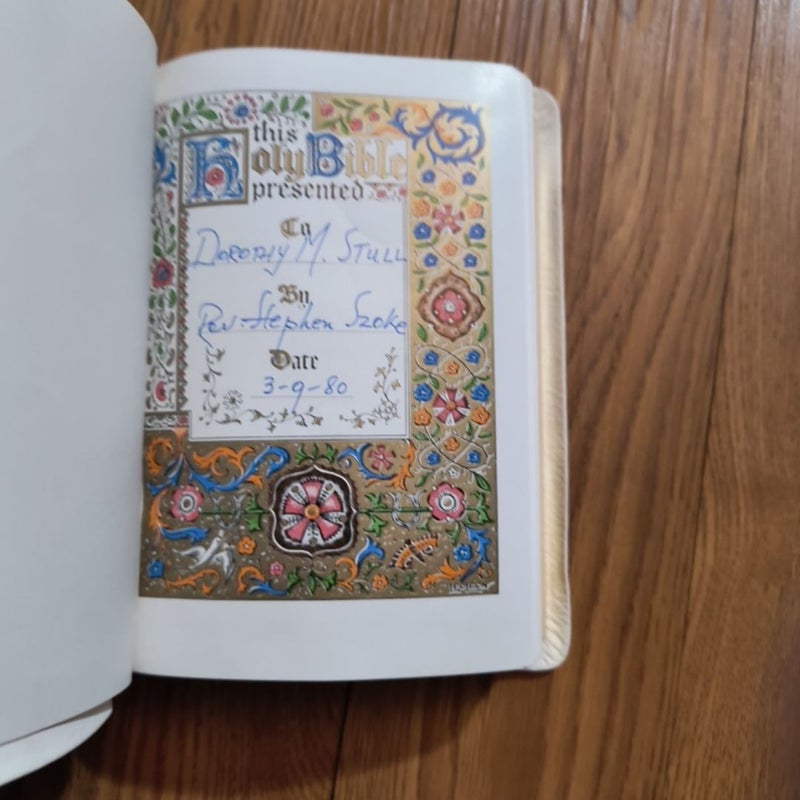 this
Holy Bible
presented
To
Dorothy M. Stull
By
Rev. Stephen Szoke
Date
3-9-80